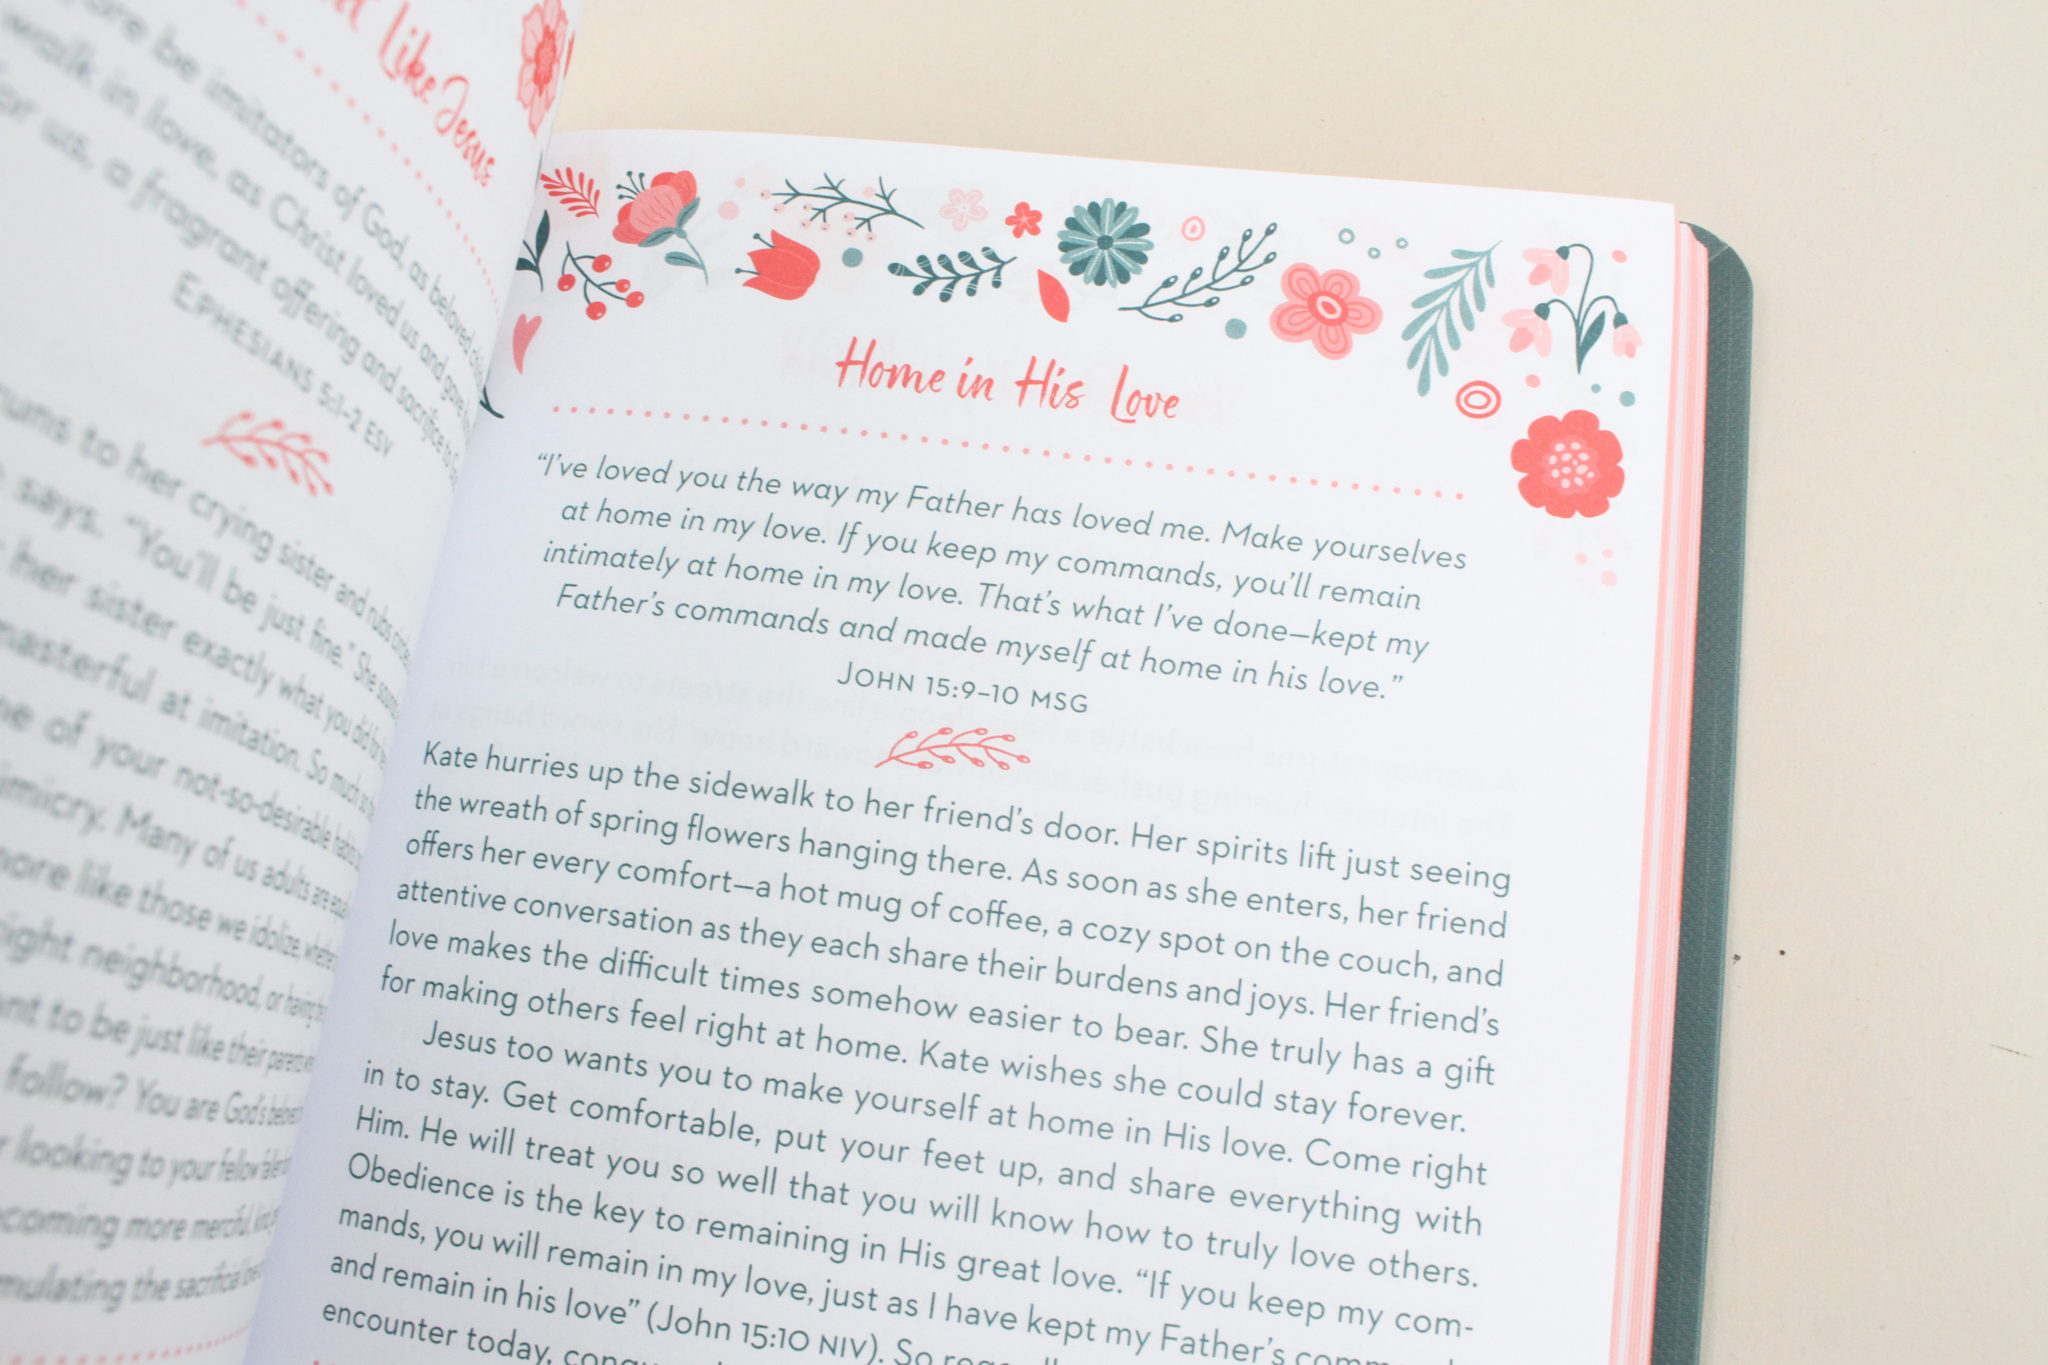 Like Jesus
be imitators of God, as beloved
walk in love, as Christ loved us and gave
for us, a fragrant offering and sacrifice to
EPHESIANS 5:1–2 ESV
to her crying sister and rubs
says. “You’ll be just fine.” She
her sister exactly what you did for
masterful at imitation. So much so
of your not-so-desirable habits
Many of us adults are
more like those we idolize,
right neighborhood, or having
to be just like their parents
follow? You are God’s
looking to your fellow
becoming more merciful,
the sacrificial
Home in His Love
“I’ve loved you the way my Father has loved me. Make yourselves
at home in my love. If you keep my commands, you’ll remain
intimately at home in my love. That’s what I’ve done—kept my
Father’s commands and made myself at home in his love.”
JOHN 15:9–10 MSG
Kate hurries up the sidewalk to her friend’s door. Her spirits lift just seeing
the wreath of spring flowers hanging there. As soon as she enters, her friend
offers her every comfort—a hot mug of coffee, a cozy spot on the couch, and
attentive conversation as they each share their burdens and joys. Her friend’s
love makes the difficult times somehow easier to bear. She truly has a gift
for making others feel right at home. Kate wishes she could stay forever.
Jesus too wants you to make yourself at home in His love. Come right
in to stay. Get comfortable, put your feet up, and share everything with
Him. He will treat you so well that you will know how to truly love others.
Obedience is the key to remaining in His great love. “If you keep my com-
mands, you will remain in my love, just as I have kept my Father’s
and remain in his love” (John 15:10 NIV). So
encounter today,